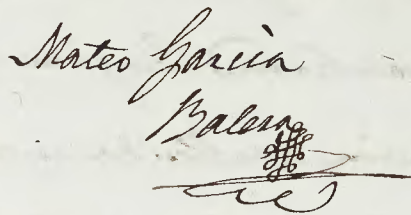 Mateo Garcia
Balera